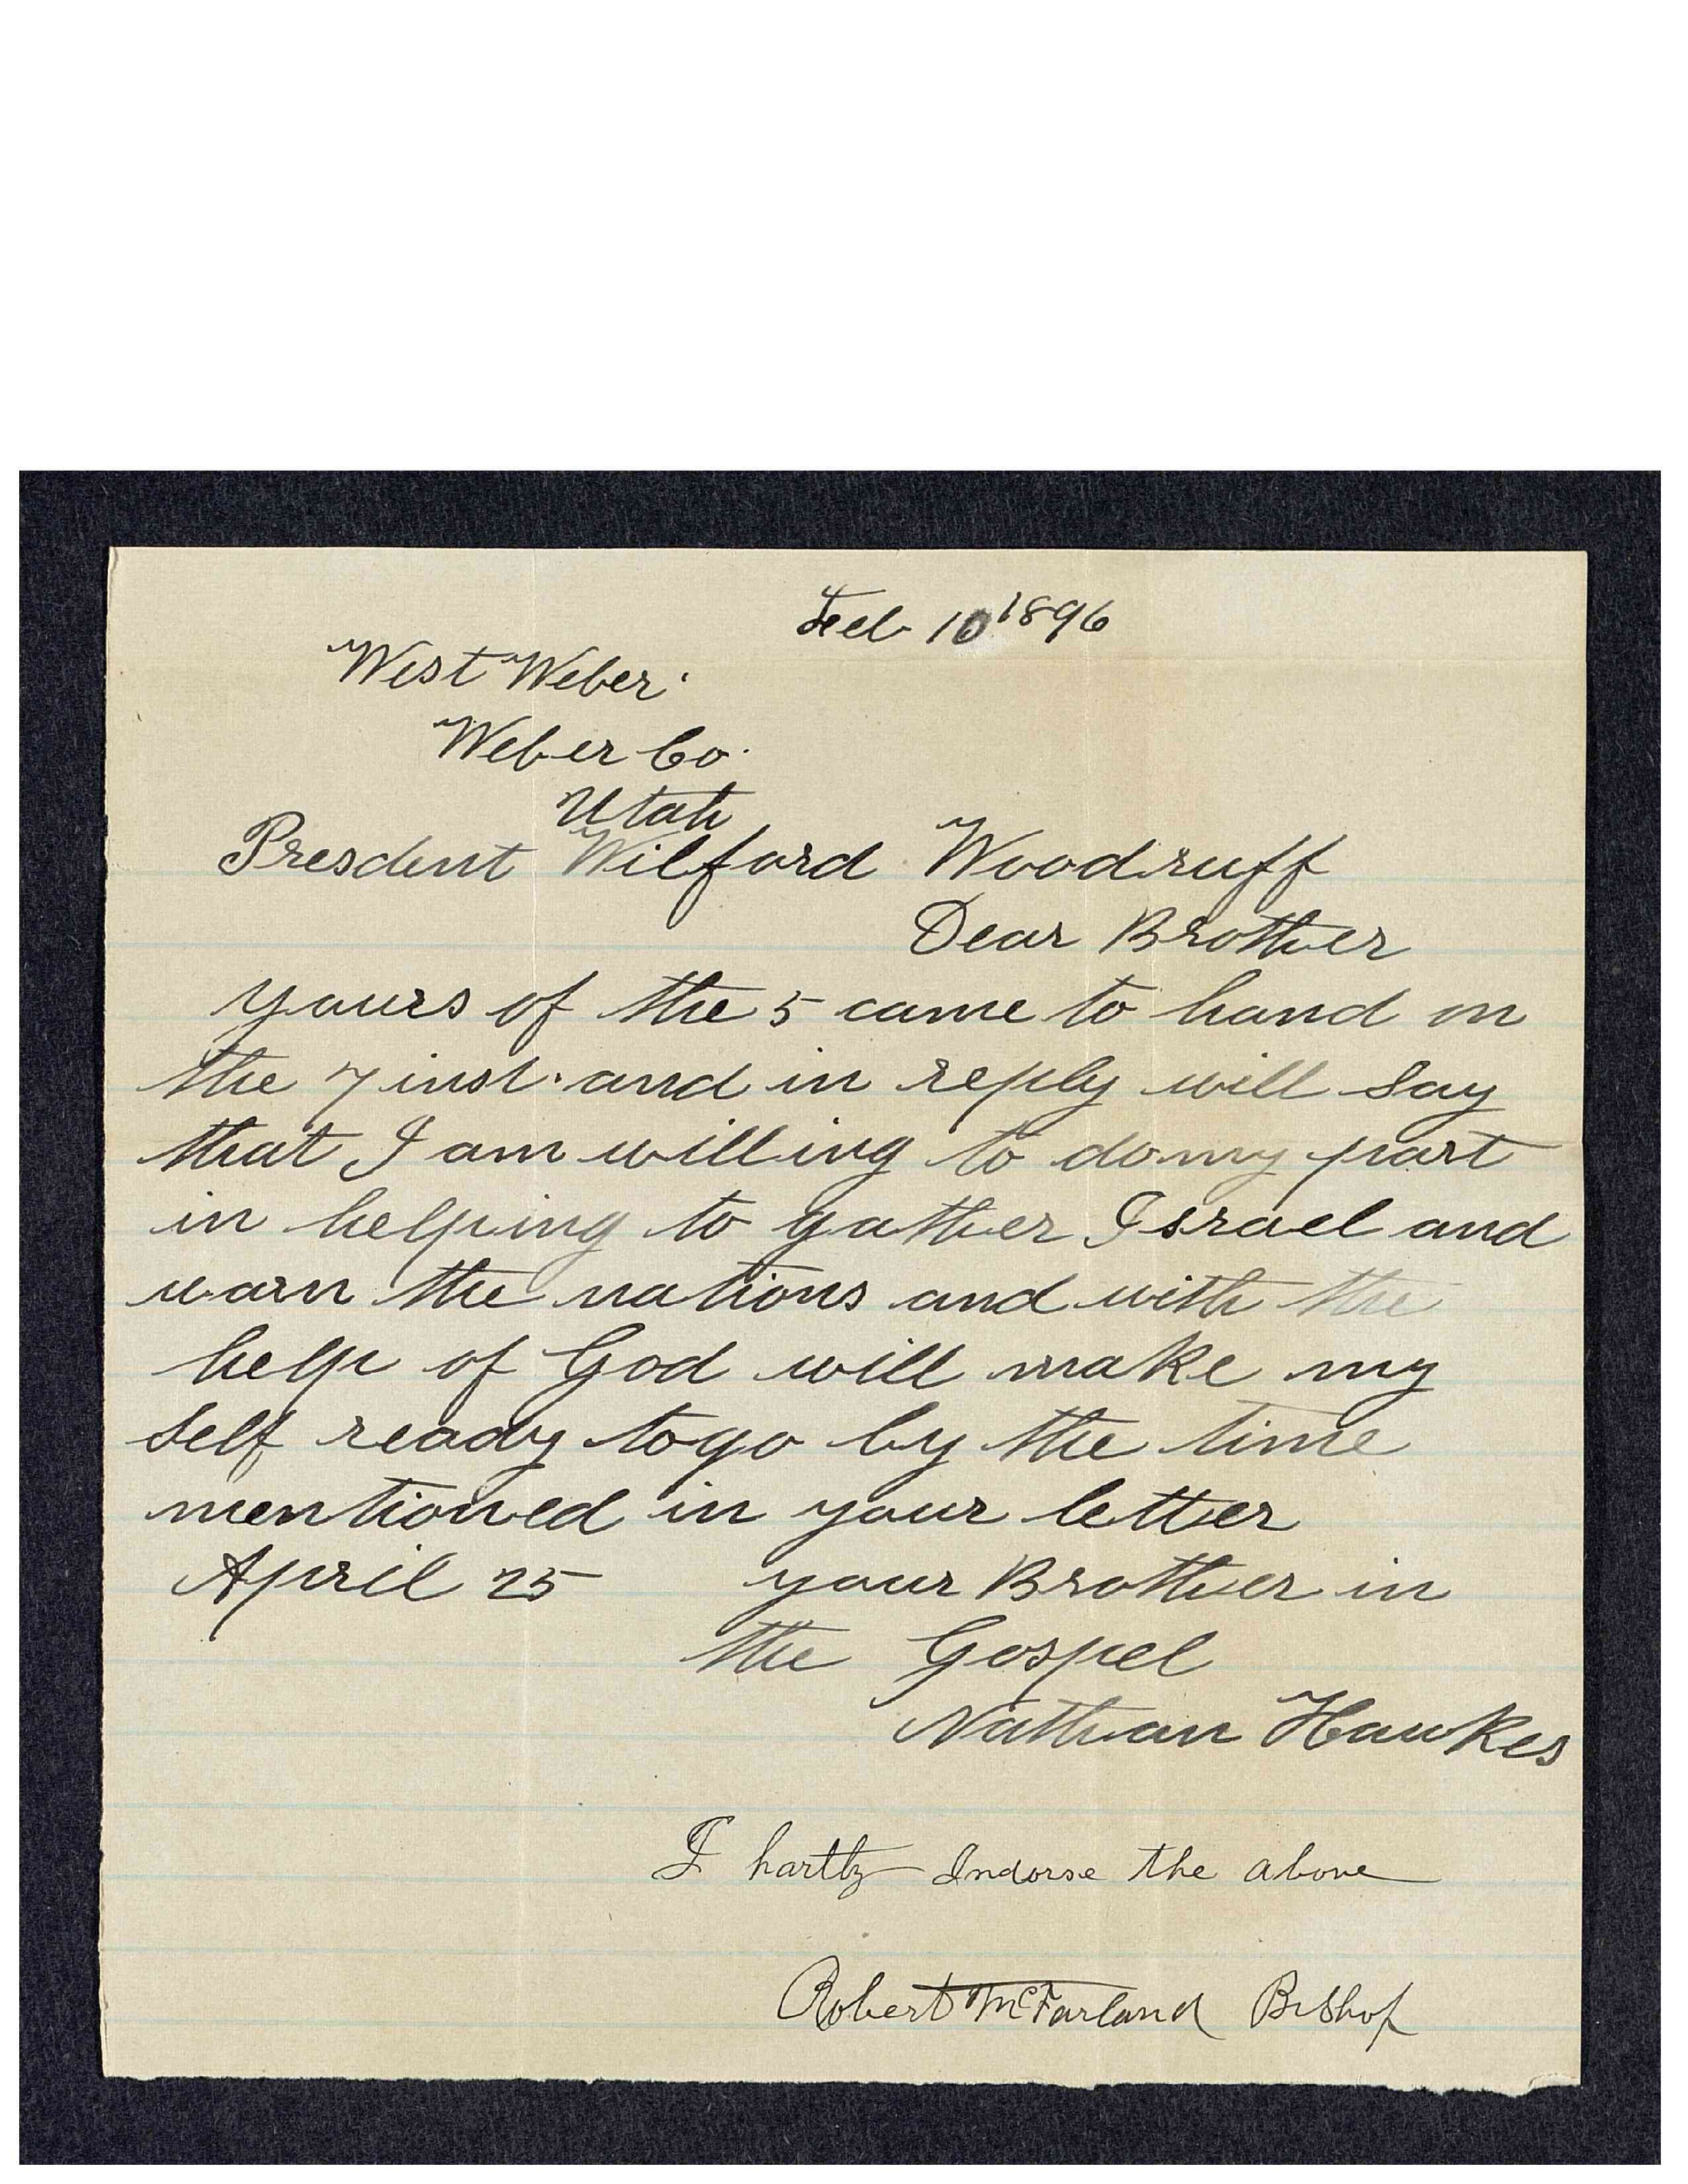 Feb 10 1896
West Weber.
Weber Co.
Utah
Presdent Wilford Woodruff
Dear Brother
yours of the 5 came to hand on
the 7 inst. and in reply will say
that I am willing to do my part
in helping to gather Israel and
warn the nations and with the
help of God will make my
self ready to go by the time
mentioned in your letter
April 25 your Brother in
the Gospel
Nathan Hawkes
I hartly Indorse the above
Robert McFarland Bishop